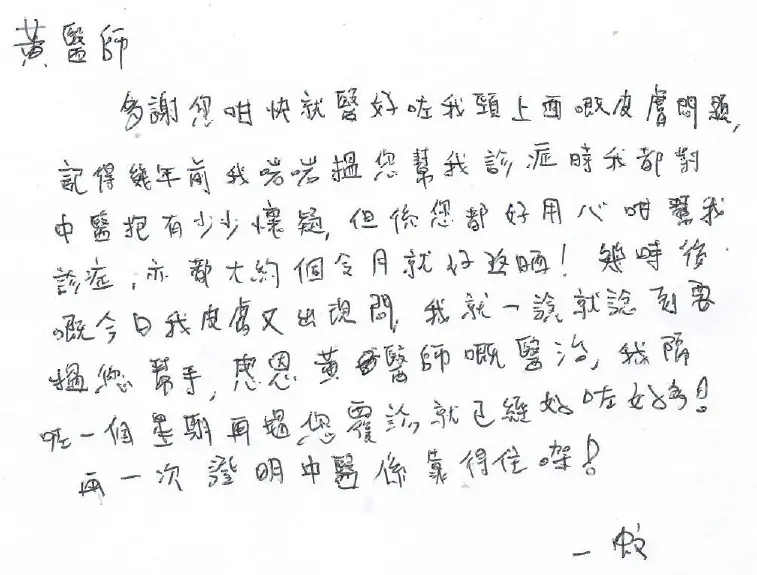 黃醫師
多謝您咁快就醫好咗我頸上面嘅皮膚問題,
記得幾年前我啱啱搵您幫我診症時我都對
中醫抱有少少懷疑, 但係您都好用心咁幫我
診症, 亦都大約個令月就好返晒! 幾時後
嘅今日我皮膚又出現問, 我就一諗就諗到要
搵您幫手, 感恩黃醫師嘅醫治, 我隔
咗一個星期再搵您覆診, 就已經好咗好多!
再一次證明中醫係靠得住㗎!